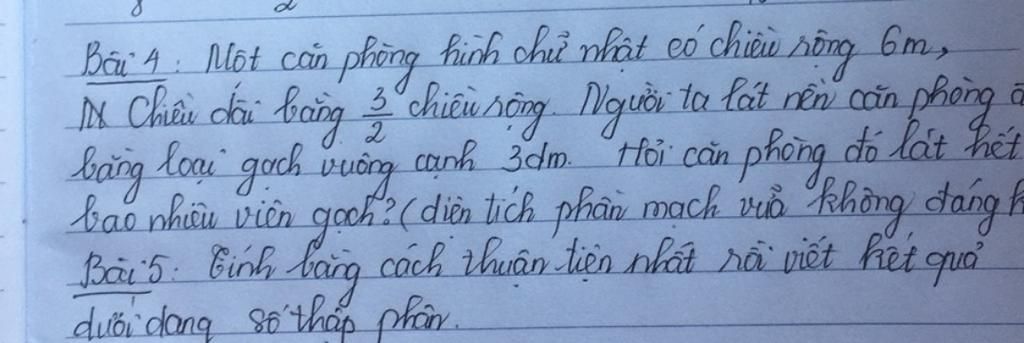 Bài 4: Một căn phòng hình chữ nhật có chiều rộng 6m,
Chiều dài bằng 3/2 chiều rộng. Người ta lát nền căn phòng đ
bằng loại gạch vuông cạnh 3dm. Hỏi căn phòng đó lát hết
bao nhiêu viên gạch? (diện tích phần mạch vữa không đáng k
Bài 5: Tính bằng cách thuận tiện nhất rồi viết kết quả
dưới dạng số thập phân.